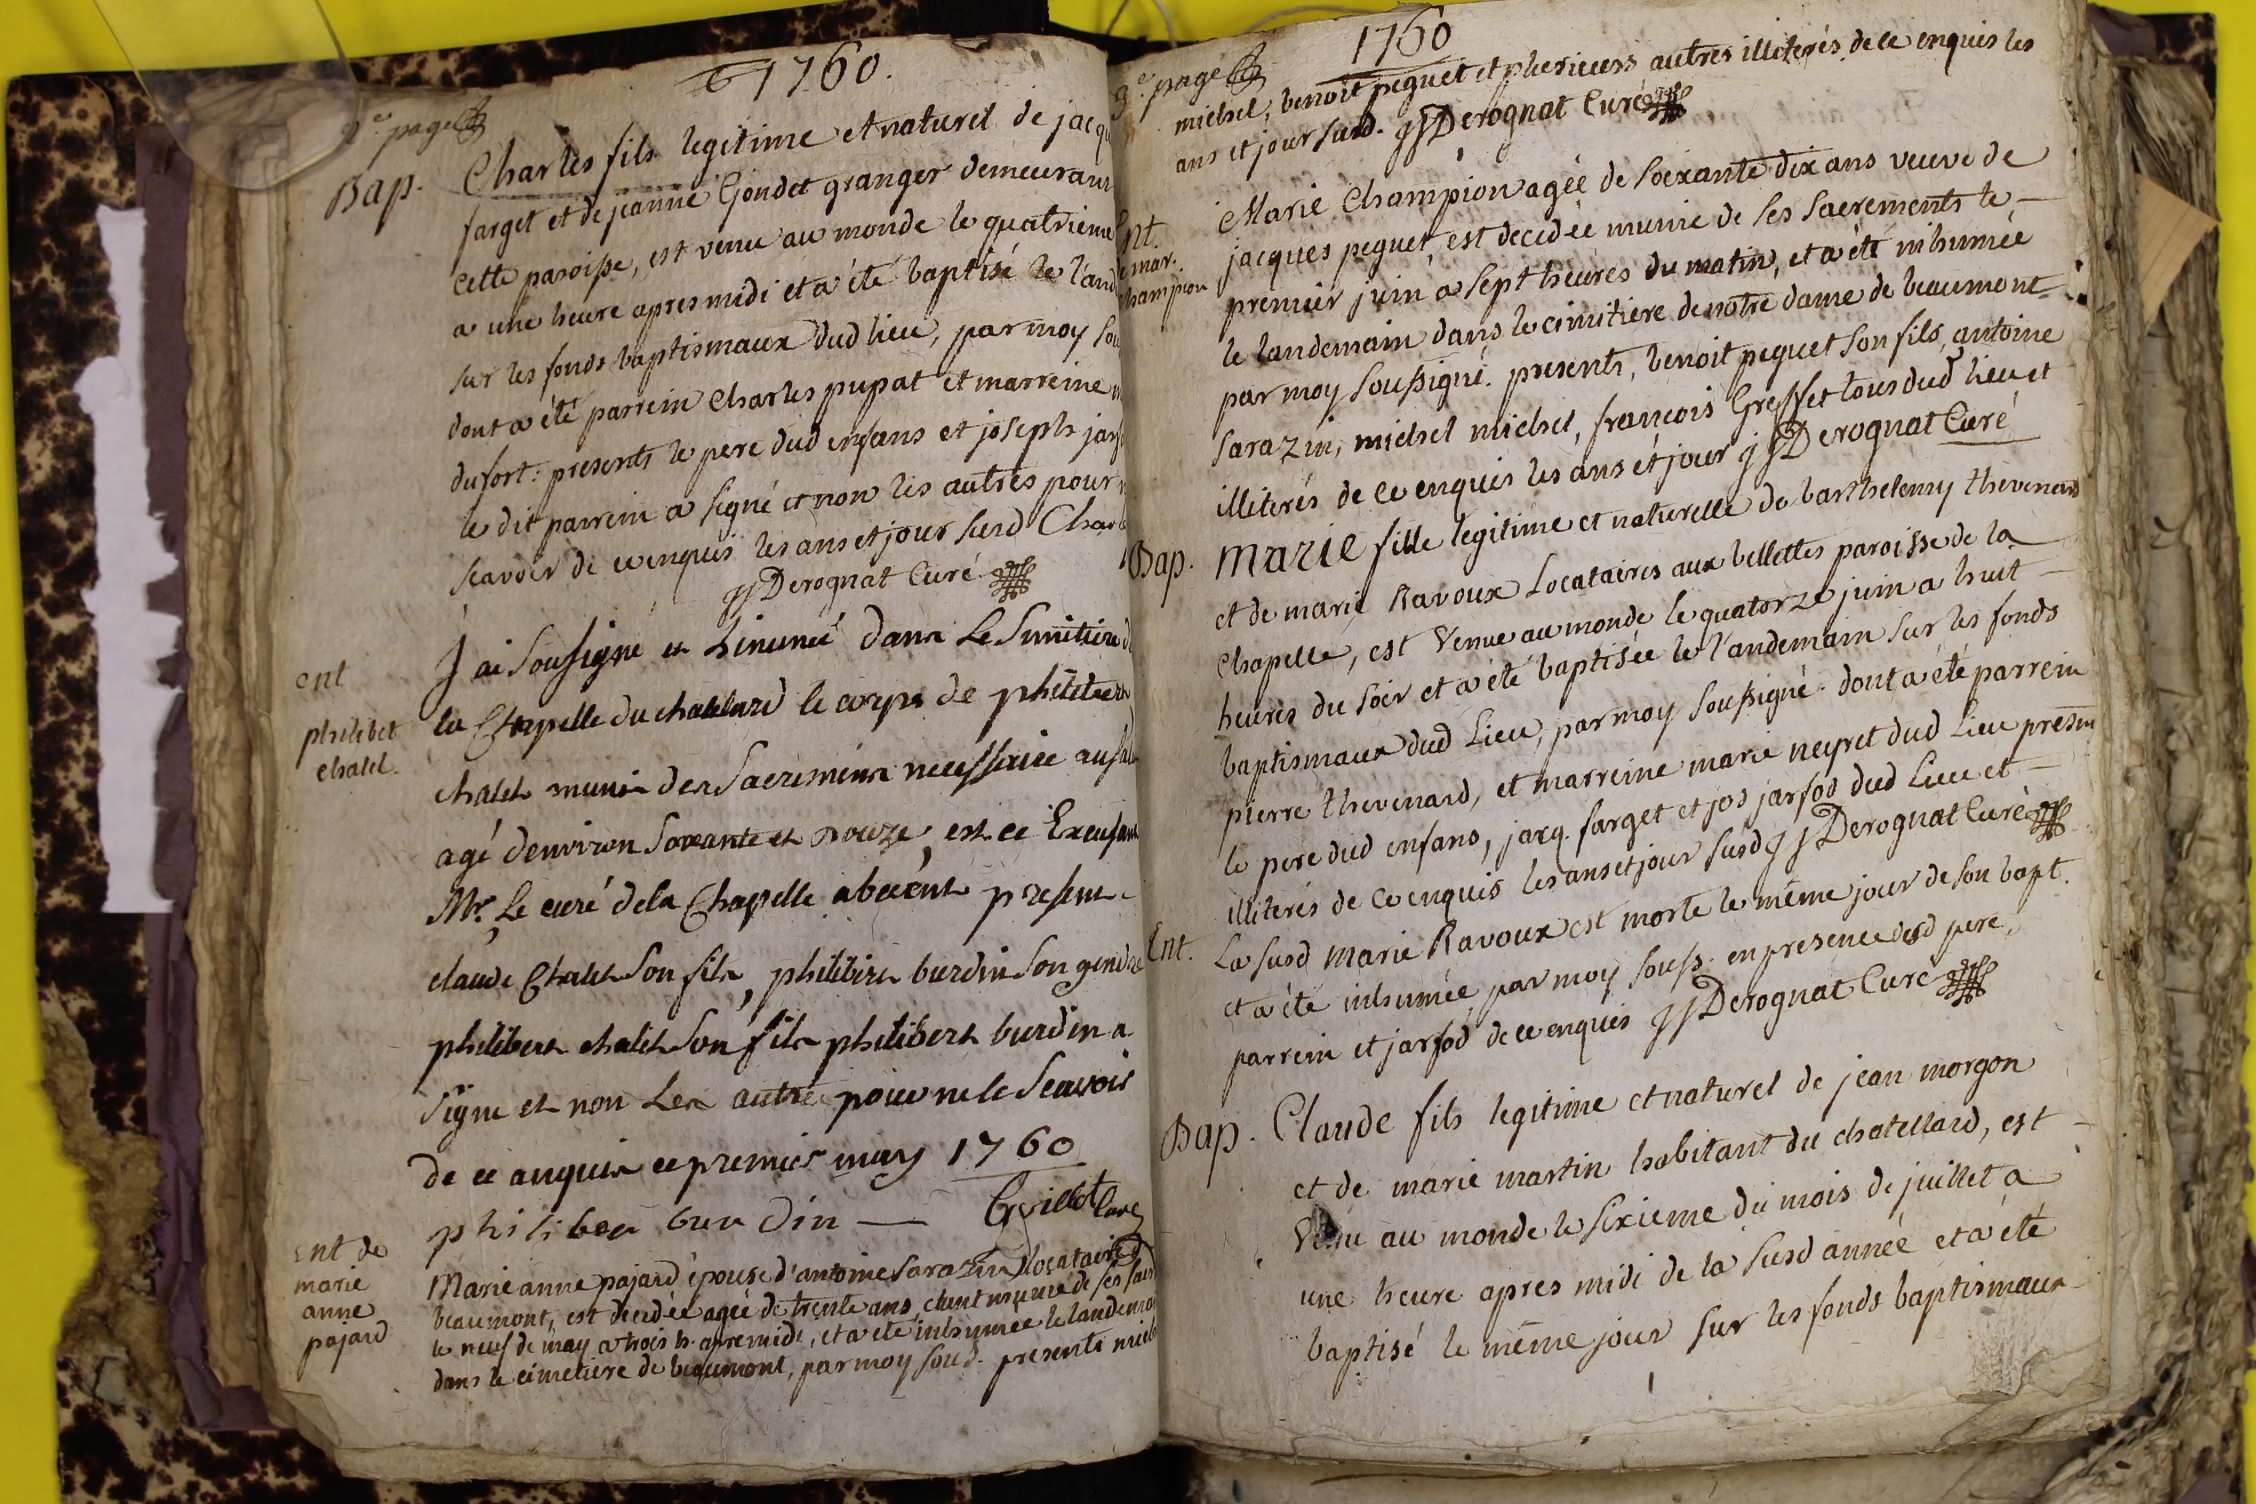 1760.
2.e page
Bap.
Charles fils legitime et naturel de jacqu
farget et de jeanne Goudet granger demeurans
cette paroisse, est venu au monde le quatrieme
a une heure apres midi et a été baptisé le l'and
sur les fonds baptismaux dud lieu, par moy sou
dont a été parrein Charles pupat et marreine
dufort: presents le pere dud enfans et joseph jarf
le dit parrein a signé et non les autres pour
scavoir de ce enquis les ans et jour susd Charl
JJ Derognat Curé
ent
philibet
chatel.
J ai sousigne et hinumé dans Le Simitiere d
la Chapelle du chatelard le corps de philibert
chatel muni des Sacremens necessaire au sal
agé denviron soixante et douze, est ce
Mr. Le curé dela Chapelle abcent present
claude Chatel son fils, philibert burdin son gendre
philibert chatel son fils philibert burdin a
signe et non Les autre pour ne le Scavoir
de ce anquis ce premier may 1760
philiber burdin — Guillot Curé
Ent de
marie
anne
pajard
Marie anne pajard épouse d'antoine sarazin locataire
beaumont, est decedée agée de trente ans etant munie de ses sacr
le neuf de may a trois h. apremidi, et a eté inhumée le landemai
dans le cimetiere de beaumont, par moy sousd. presents mich
1760
3.e page
michel, benoit peguet et plusieurs autres illiterés de ce enquis les
ans et jour susd. JJ Derognat Curé
Ent.
mar.
champion
Marie Champion agée de soixante dix ans veuve de
jacques peguet, est decedée munie de ses sacrements le —
premier juin a sept heures du matin, et a été inhumée
le landemain dans le cimitiere de notre dame de beaumont
par moy soussigné. presents, benoit peguet son fils, antoine
sarazin, michel michel, françois Greffet tous dud lieu et
illiterés de ce enquis les ans et jour JJ Derognat Curé
Bap.
Marie fille legitime et naturelle de barthelemy thevenard
et de marie Ravoux Locataires aux bellettes paroisse de la
chapelle, est venue au monde le quatorze juin a huit —
heures du soir et a été baptisée le l'andemain sur les fonds
baptismaux dud Lieu, par moy soussigné. dont a été parrein
pierre thevenard, et marreine marie neyret dud Lieu presen
le pere dud enfans, jacq. farget et jos jarfod dud Lieu et —
illiterés de ce enquis les ans et jour susd JJ Derognat Curé
Ent.
La susd Marie Ravoux est morte le même jour de son bapt.
et a été inhumée par moy souss. en presence dud pere,
parrein et jarfod de ce enquis JJ Derognat Curé
Bap.
Claude fils legitime et naturel de jean morgon
et de marie martin habitant du chatellard, est —
venu au monde le sixieme du mois de juillet a
une heure apres midi de la susd année et a été
baptisé le même jour sur les fonds baptismaux